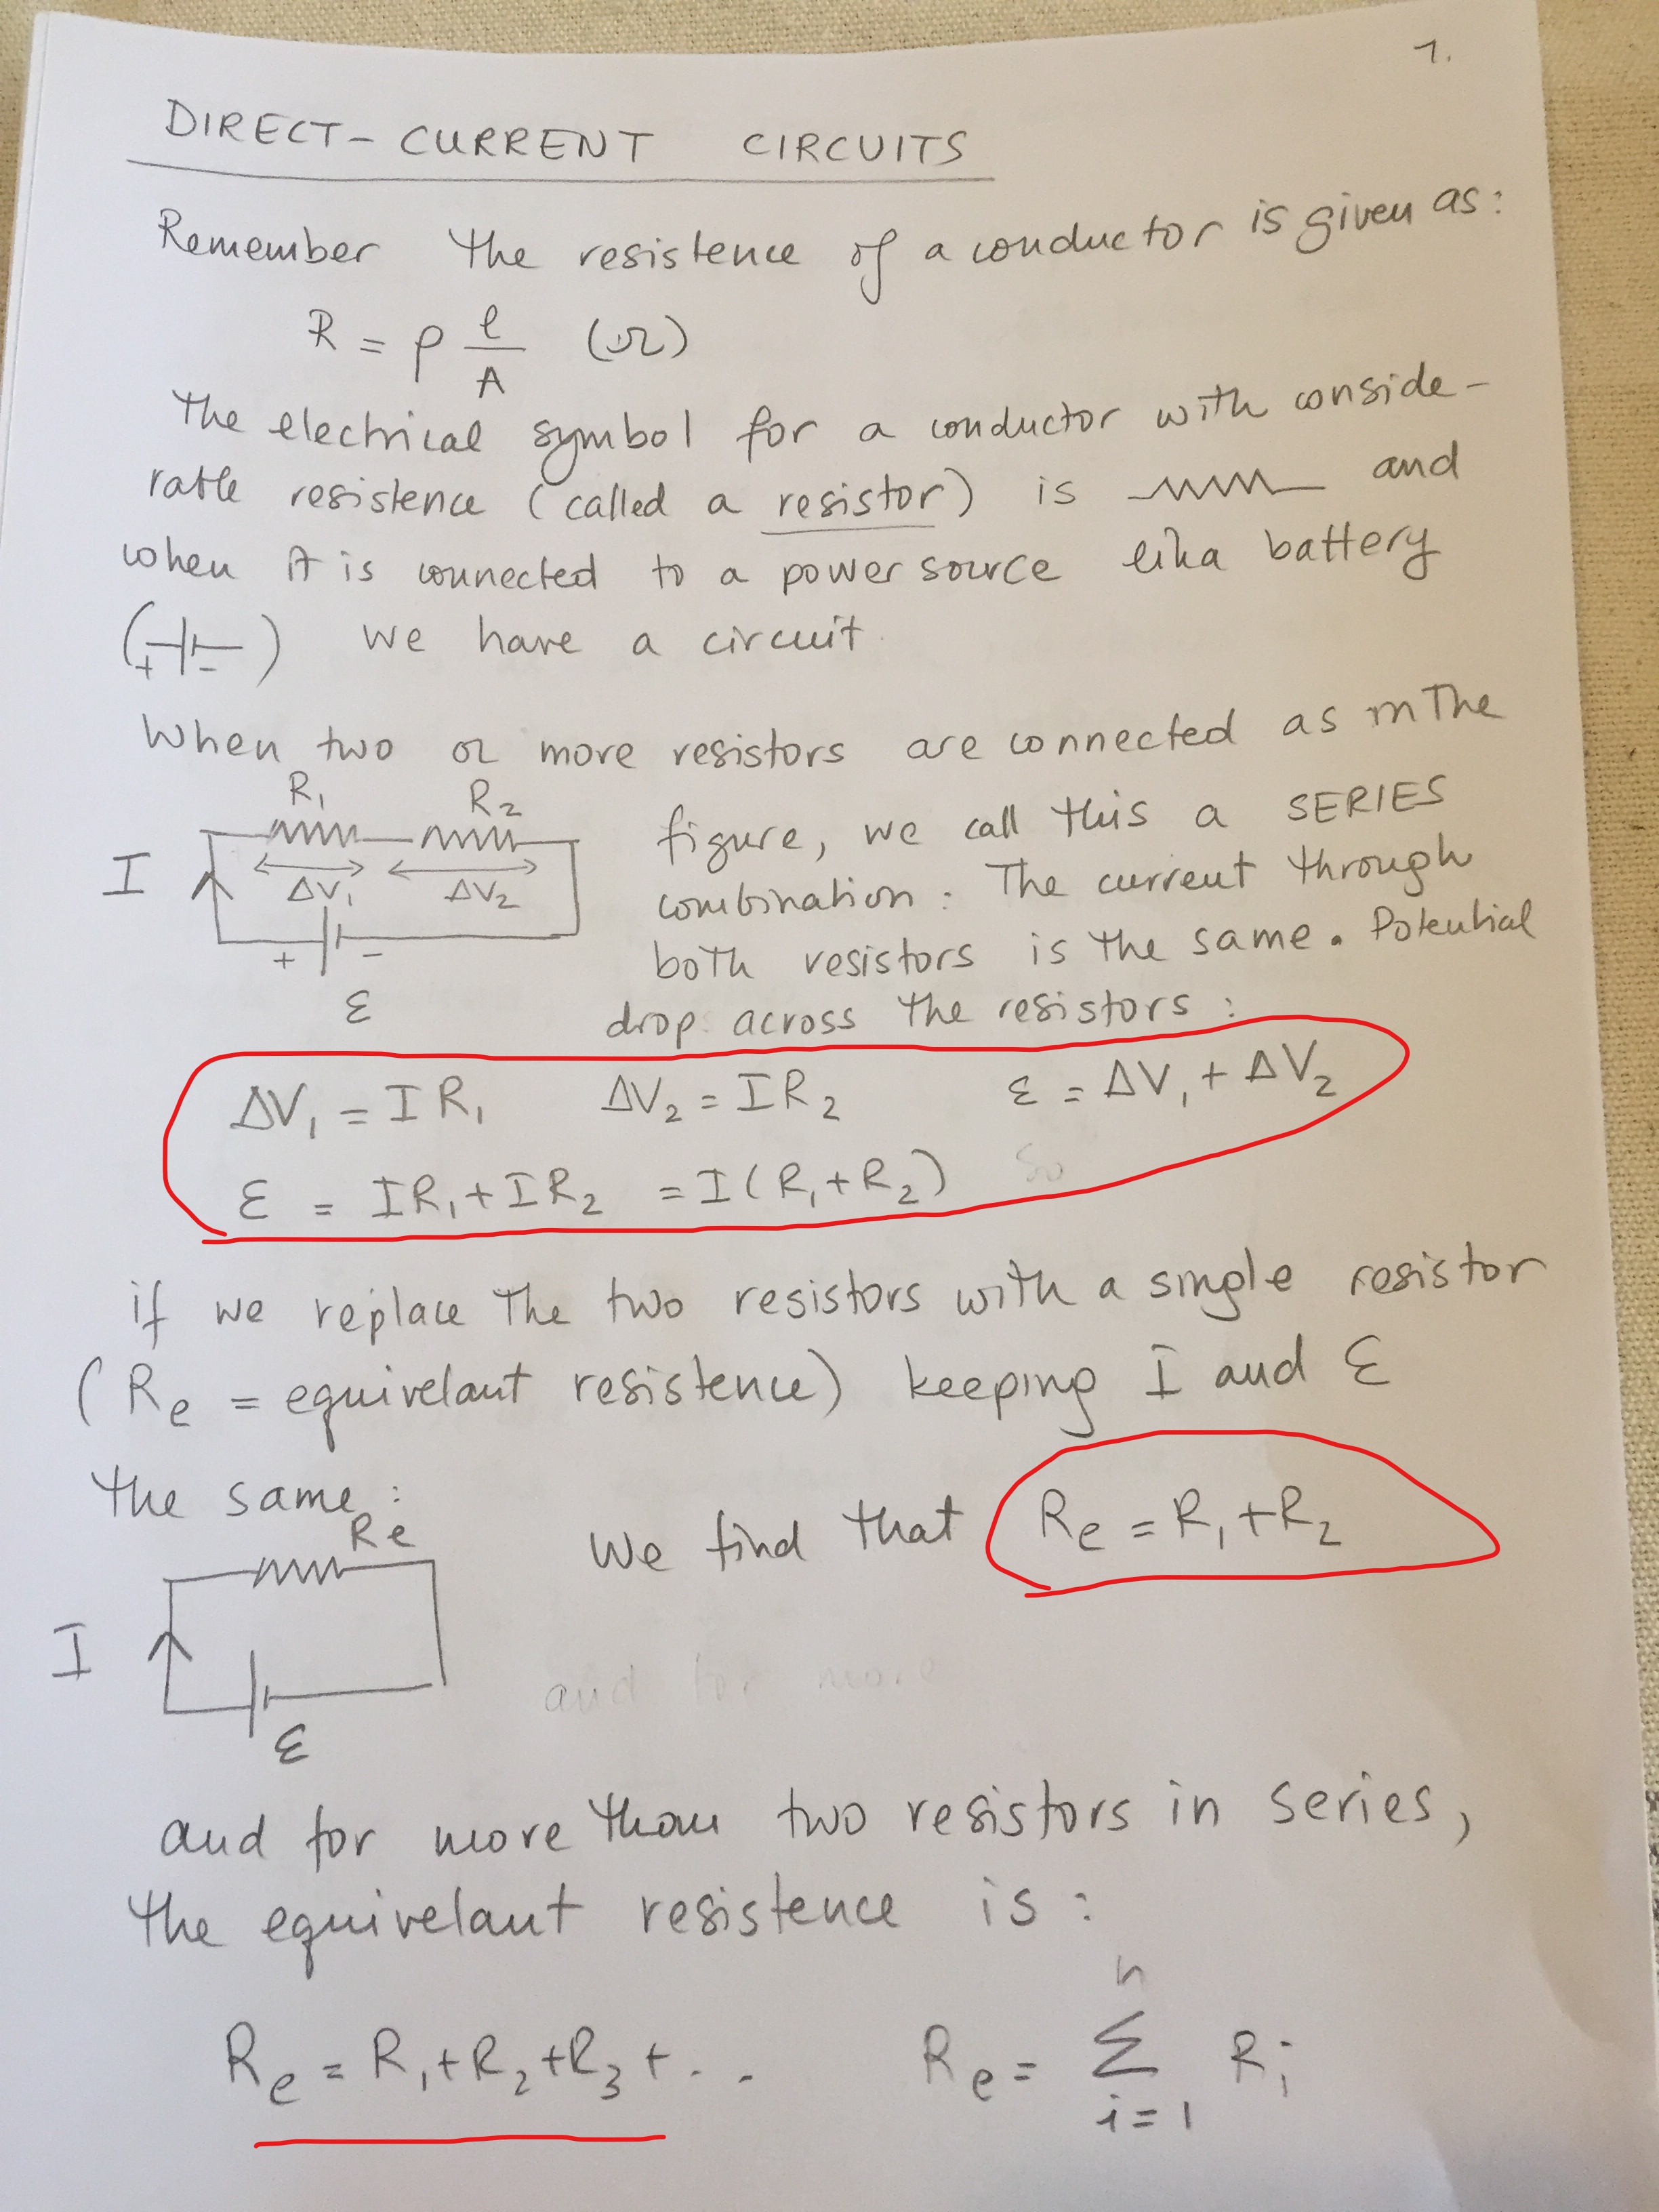 1.
DIRECT-CURRENT CIRCUITS
Remember the resistence of a conductor is given as:
R = ρ ℓ/A (Ω)
The electrical symbol for a conductor with conside-
rable resistence (called a resistor) is and
when it is connected to a power source lika battery
(+ -) we have a circuit.
When two or more resistors are connected as in The
R₁ R₂
figure, we call this a SERIES
I ΔV₁ ΔV₂
combination: The current through
both resistors is the same. Potential
+ -
ε
drop across the resistors:
ΔV₁ = IR₁ ΔV₂ = IR₂ ε = ΔV₁ + ΔV₂
ε = IR₁ + IR₂ = I(R₁+R₂) So
if we replace The two resistors with a single resistor
(Re = equivelant resistence) keeping I and ε
the same:
Re
We find that Re = R₁+R₂
I
ε
and for more
and for more than two resistors in series,
the equivelant resistence is:
Re = R₁+R₂+R₃+... Re = Σ_{i=1}^{n} Ri